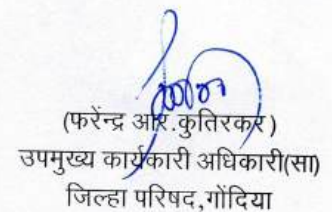 (फरेन्द्र आर.कुतिरकर)
उपमुख्य कार्यकारी अधिकारी(सा)
जिल्हा परिषद,गोंदिया